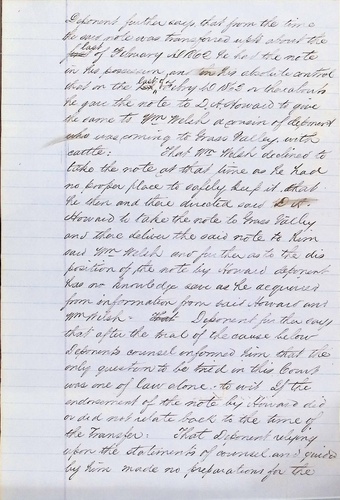 Deponent further says that from the time
the said note was transferred until about the
last of February A.D. 1862 he had the note
in his possession, and in his absolute control
that on the last of Feb'ry A.D. 1862 or thereabouts
he gave the note to D. A. Howard to give
the same to Wm Welsh a cousin of deponent
who was coming to Grass Valley, with
cattle: That Wm Welsh declined to
take the note at that time as he had
no proper place to safely keep it that
he then and there directed said D. A.
Howard to take the note to Grass Valley
and there deliver the said note to him
said Wm Welsh and further as to the dis
position of the note by Howard deponent
has no knowledge save as he acquired
from information from said Howard and
Wm Welsh. That Deponent further says
that after the trial of the cause below
Deponents counsel informed him that the
only question to be tried in this Court
was one of law alone. to wit If the
endorsement of the note by Howard did
or did not relate back to the time of
the Transfer: That Deponent relying
upon the statements of counsel and guided
by him made no preparations for the